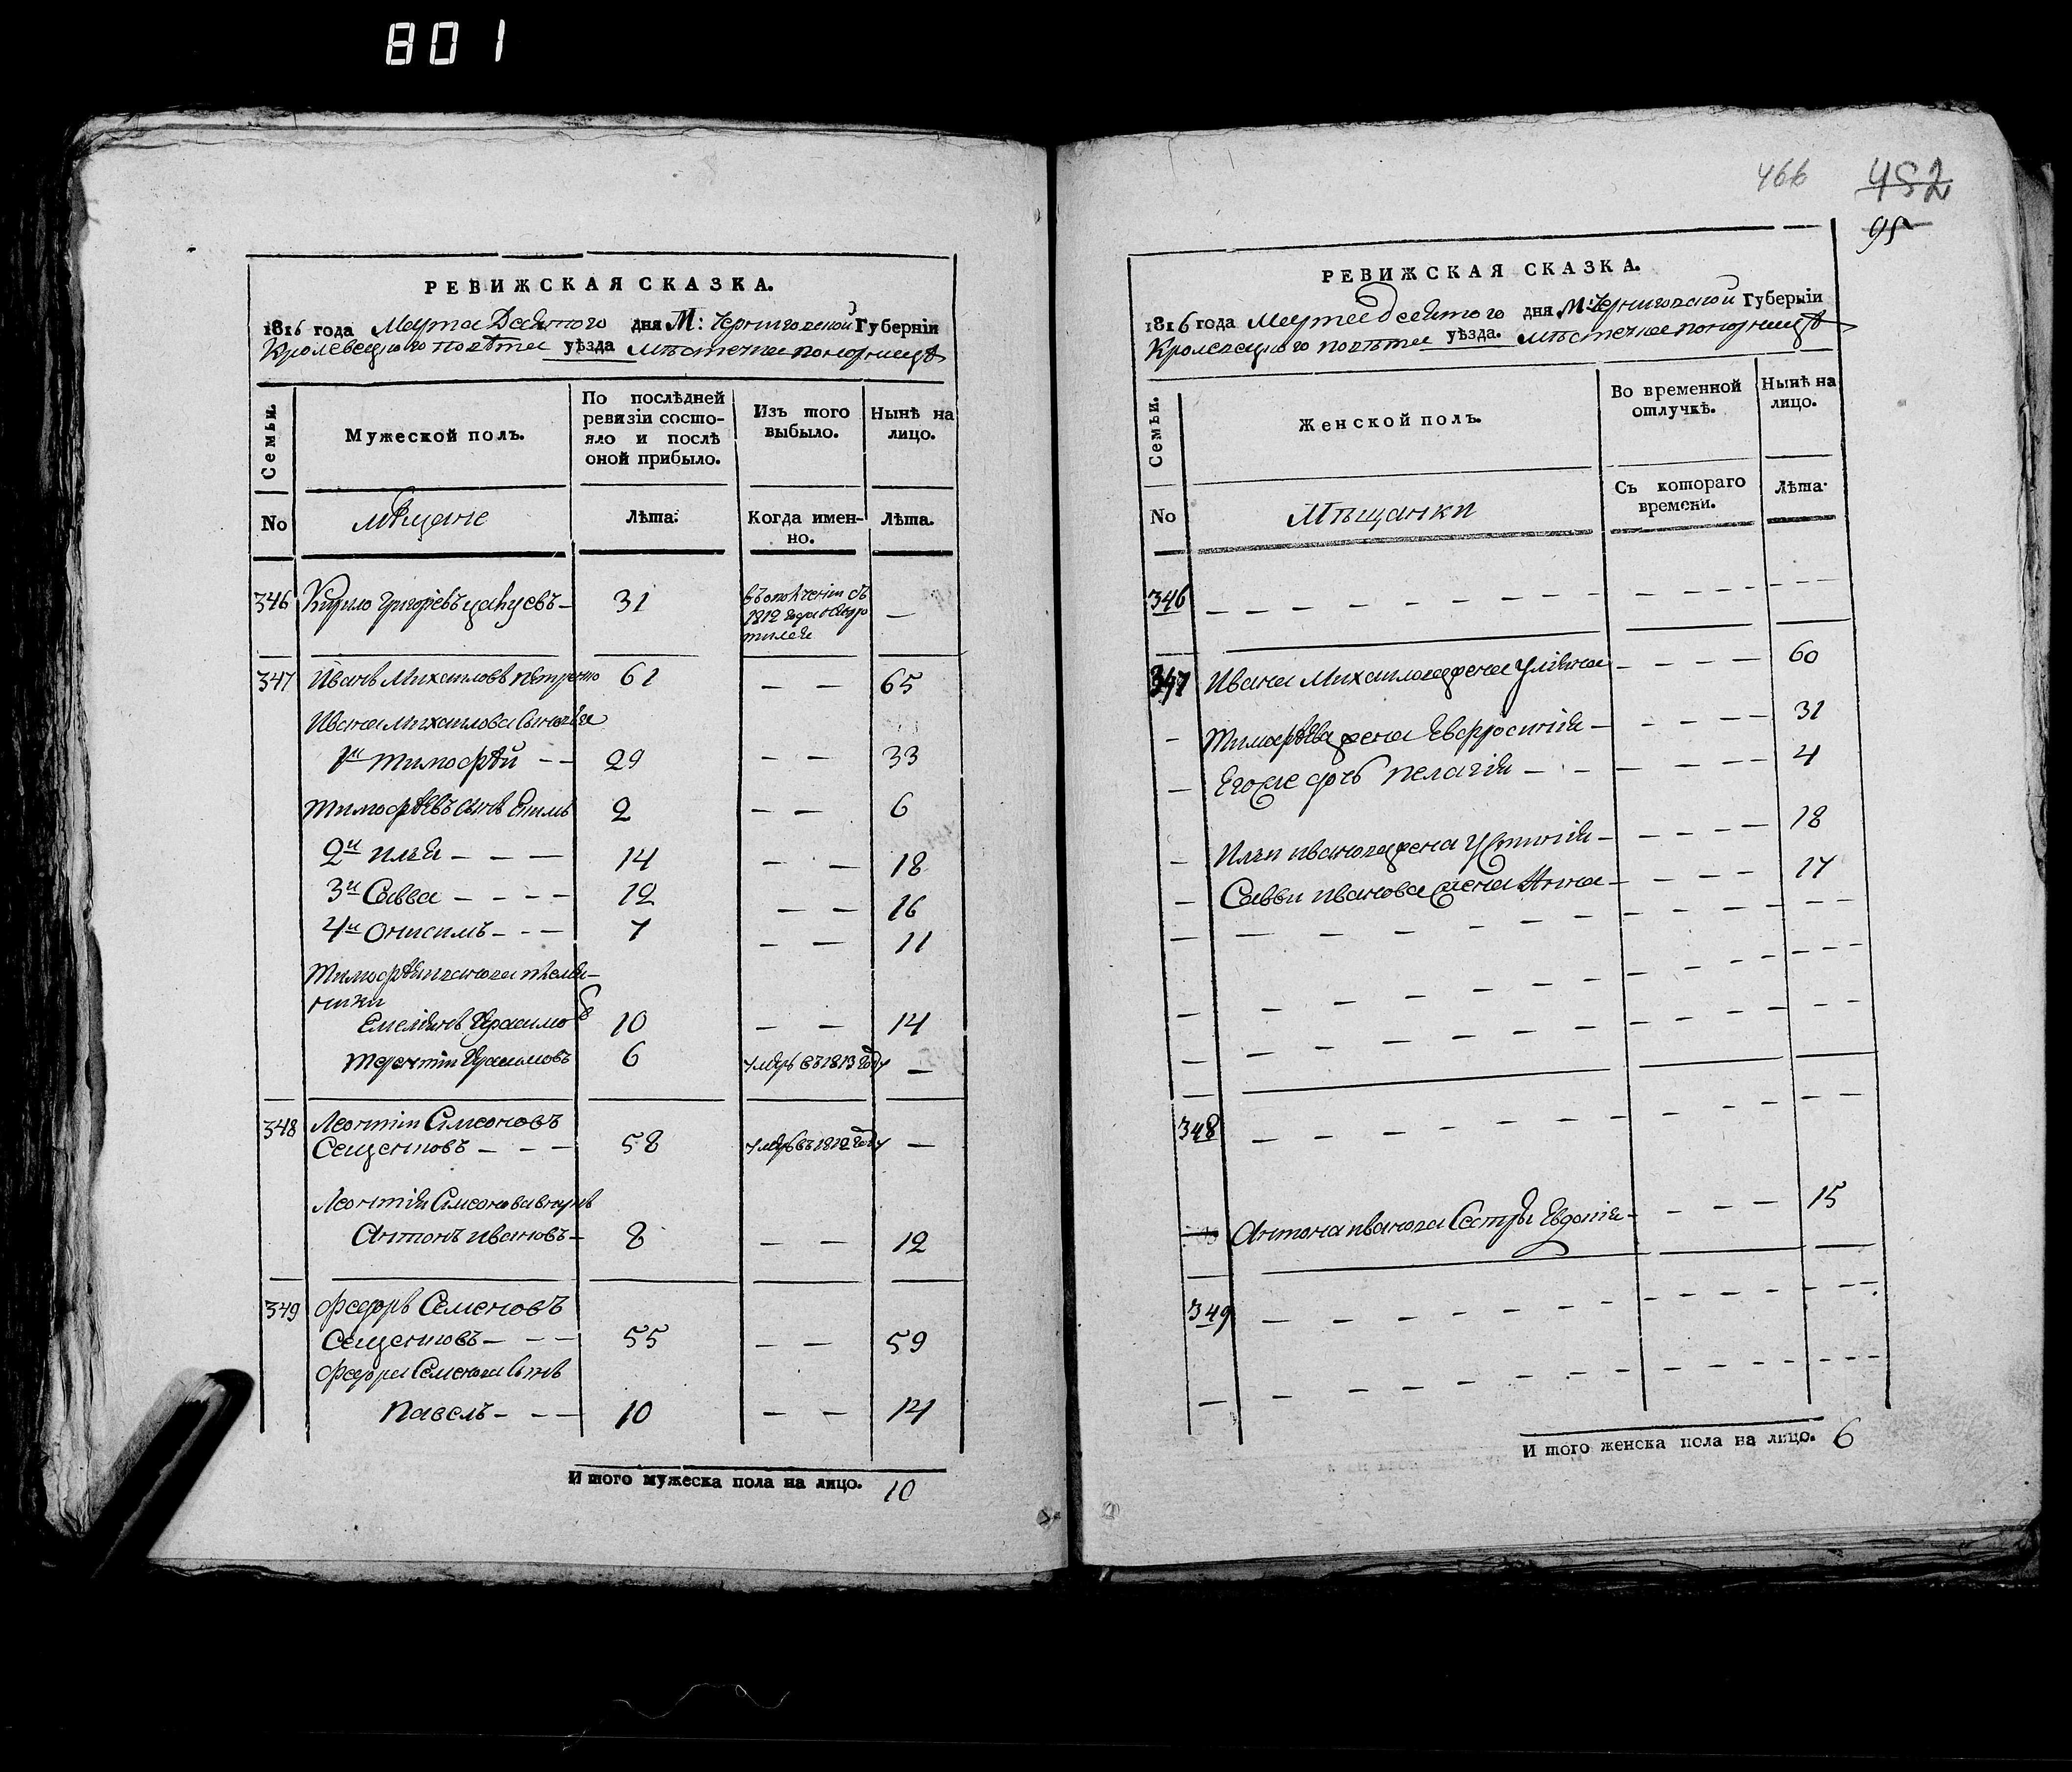 801
РЕВИЖСКАЯ СКАЗКА.
1816 года Марта Десятого дня М: Черниговской Губерніи
Кролевецкого повѣта уѣзда мѣстечка понорницѣ
Семьи.
Мужеской полъ.
По послѣдней ревизіи состояло и послѣ оной прибыло.
Изъ того выбыло.
Нынѣ на лицо.
No
мѣщане
Лѣта.
Когда именно.
Лѣта.
346 Кирило григорiевъ — 31 въ 1812 года —
347 Иванъ Михаиловъ петренко 61 — — 65
Ивана михаилова сыновья
1й тимофѣй — — 29 — — 33
тимофѣевъ сынъ 2 — — 6
2й илья — — — 14 — — 18
3й Савва — — — — 12 — — 16
4й онисимъ — — — 7 — — 11
тимофѣя иванова племян-
ники
Емелянъ Герасимовъ 10 — — 14
терентiи Герасимовъ 6 умеръ въ 1813 году —
348 Леонтiи Симеоновъ
Сещентовъ — — — 58 умеръ въ 1812 году —
Леонтiя Симеонова внукъ
Антонъ ивановъ — 8 — — 12
349 федоръ Семеновъ
Сещентовъ — — — 55 — — 59
федора Семенова сынъ
павелъ — — — 10 — — 14
И того мужеска пола на лицо. 10
466 482
95
РЕВИЖСКАЯ СКАЗКА.
1816 года Марта десятого дня М: Черниговской Губерніи
Кролевецкого повѣта уѣзда. мѣстечка понорницѣ
Семьи.
Женской полъ.
Во временной отлучкѣ.
Нынѣ на лицо.
No
Мѣщанки
Съ котораго времени.
Лѣта.
346
347 Ивана Михаилова жена улiяна — — — — 60
— тимофѣева жена Евфросинiя — — — — — 31
— Егоже дочь пелагiя — — — — — — 4
— Илiи иванова жена Устинiя — — — — — 18
— Саввы иванова жена Анна — — — — 17
348
Антона иванова Сестра Евдокiя — — — — 15
349
И того женска пола на лицо. 6